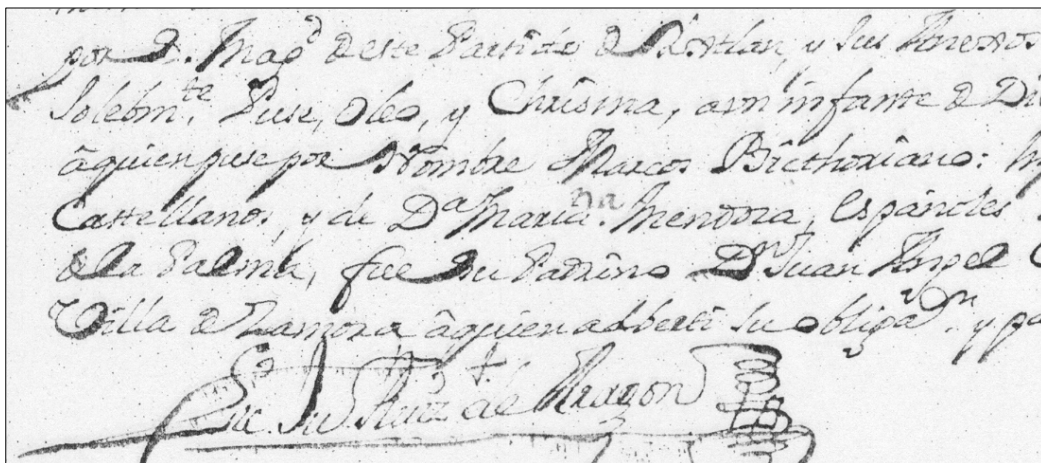 por S. Mag^d de este Partido de Ixtlan, y sus Anexos
Solebm^te. Puse, Oleo, y Chrisma, a un infante de
â quien puse por Nombre Marcos Bicthoriano:
Castellanos, y de D^a Maria^na. Mendoza, Españoles
de la Palma, fue su Padrino D^n Juan Angel
Villa de Zamora â quien adbertí su obligaz^n. y
Ruiz de Aragon